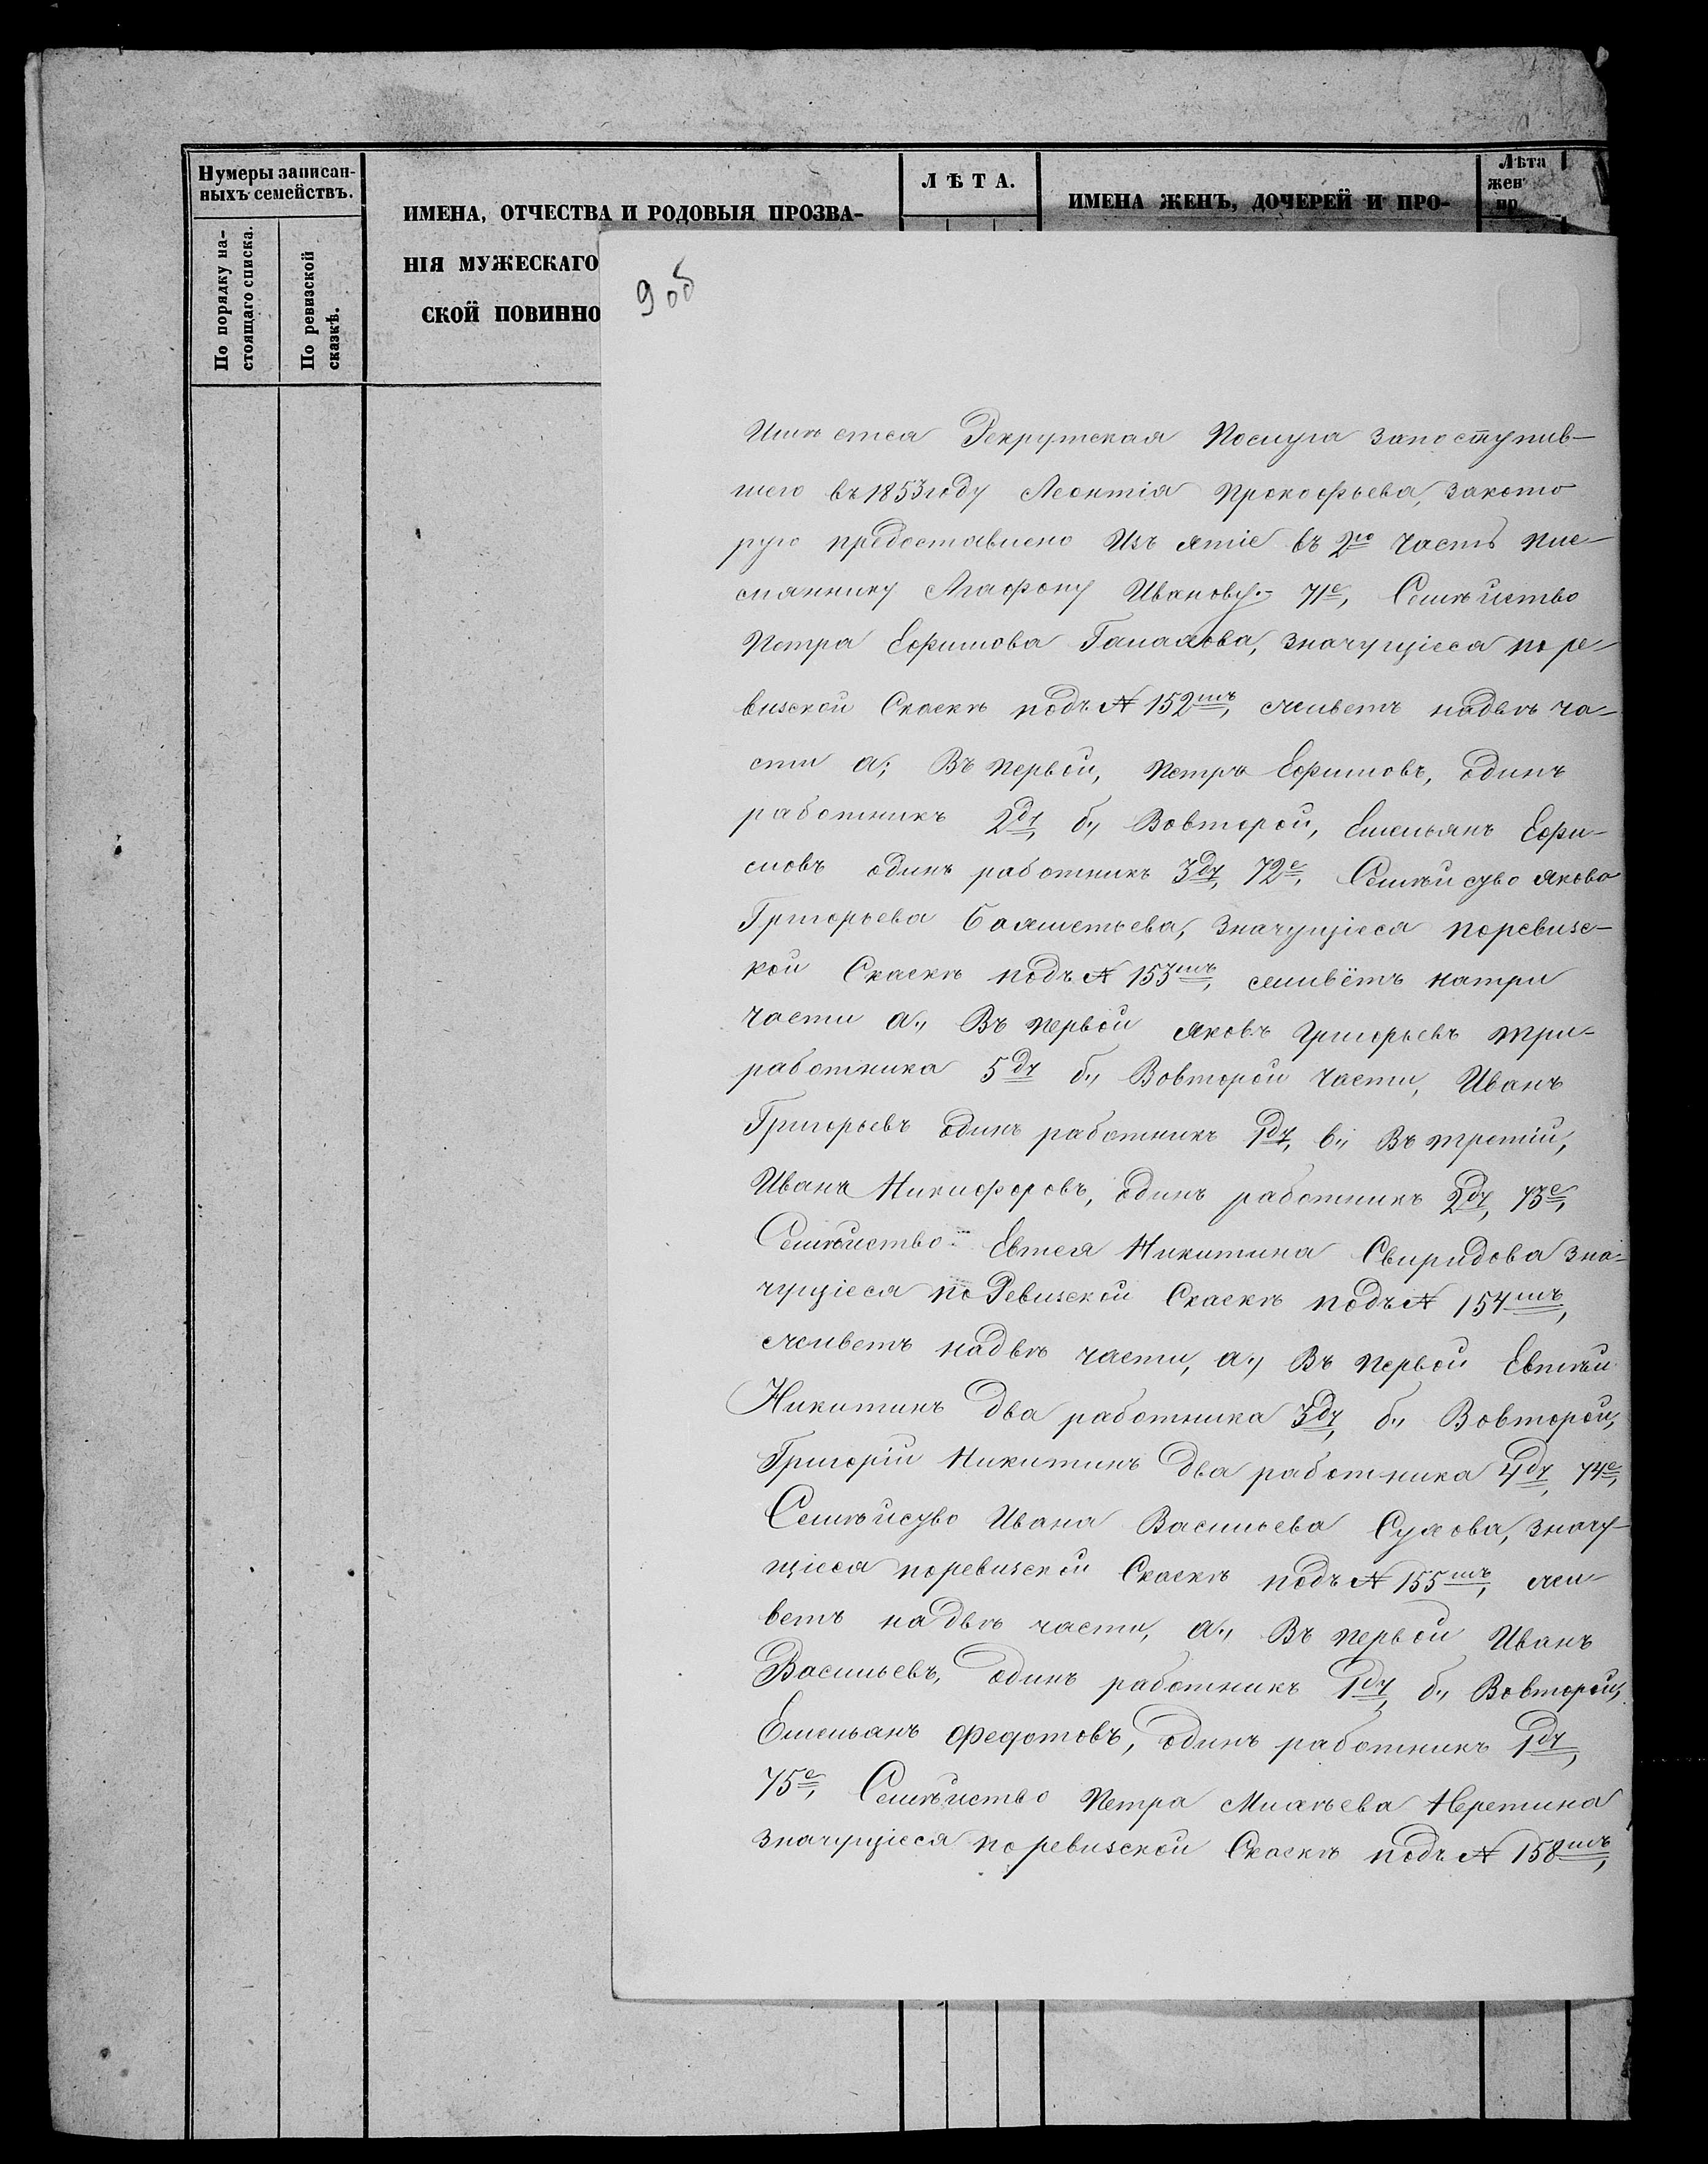 Нумеры записан-
ныхъ семействъ.
По порядку на-
стоящаго списка.
По ревизской
сказкѣ.
ИМЕНА, ОТЧЕСТВА И РОДОВЫЯ ПРОЗВА-
НІЯ МУЖЕСКАГО
СКОЙ ПОВИННО
ЛѢТА.
ИМЕНА ЖЕНЪ, ДОЧЕРЕЙ И ПРО-
Лѣта
жен
пр
9 об
Имѣется Рекрутская Послуга запоступив-
шего въ 1853 году Леонтія Прокофьева, закото
рую предоставлено Изъятіе въ 2ю часть пле-
мяннику Агафону Иванову.- 71е, Семѣйство
Петра Ефимова, значущіеся по ре-
визской Скаскѣ подъ № 152мъ, живетъ надвѣ ча-
сти а; Въ первой, Петръ Ефимовъ, одинъ
работникъ 2ду, б., Вовторой, Емельянъ Ефи-
мовъ одинъ работникъ 3ду, 72е, Семѣйство Якова
Григорьева, значущіеся поревизс-
кой Скаскѣ подъ № 153мъ, живётъ натри
части а., Въ первой Яковъ Григорьевъ три-
работника 5ду б., Вовторой части, Иванъ
Григорьевъ одинъ работникъ 1ду, в., Въ третій,
Иванъ Никифоровъ, одинъ работникъ 2ду, 73е,
Семѣйство Евтея Никитина Свиридова зна-
чущіеся по Ревизской Скаскѣ подъ № 154мъ,
живетъ надвѣ части, а., Въ первой Евтѣй
Никитинъ два работника 3ду, б., Вовторой,
Григорій Никитинъ два работника 4ду, 74е,
Семѣйство Ивана Васильева Сухова, значу-
щіеся поревизской Скаскѣ подъ № 155мъ, жи-
ветъ надвѣ части, а., Въ первой Иванъ
Васильевъ, одинъ работникъ 1ду, б., Вовторой,
Емельянъ Федотовъ, одинъ работникъ 1ду,
75е, Семѣйство Петра Михѣева Неретина
значущіеся поревизской Скаскѣ подъ № 158мъ,